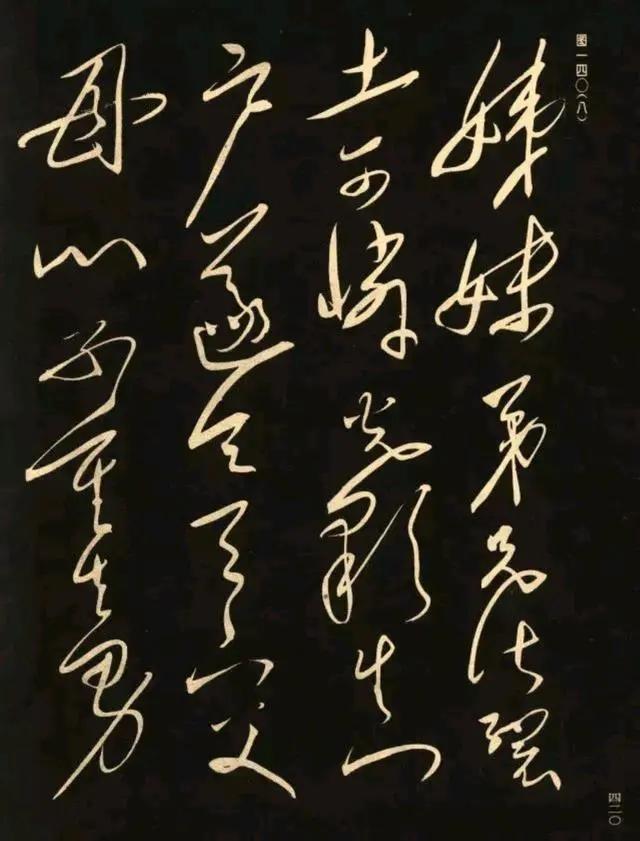 图一四〇(八)
姊妹弟兄皆裂
土可憐光彩生門
戶遂令天下父
母心不重生男
四二〇